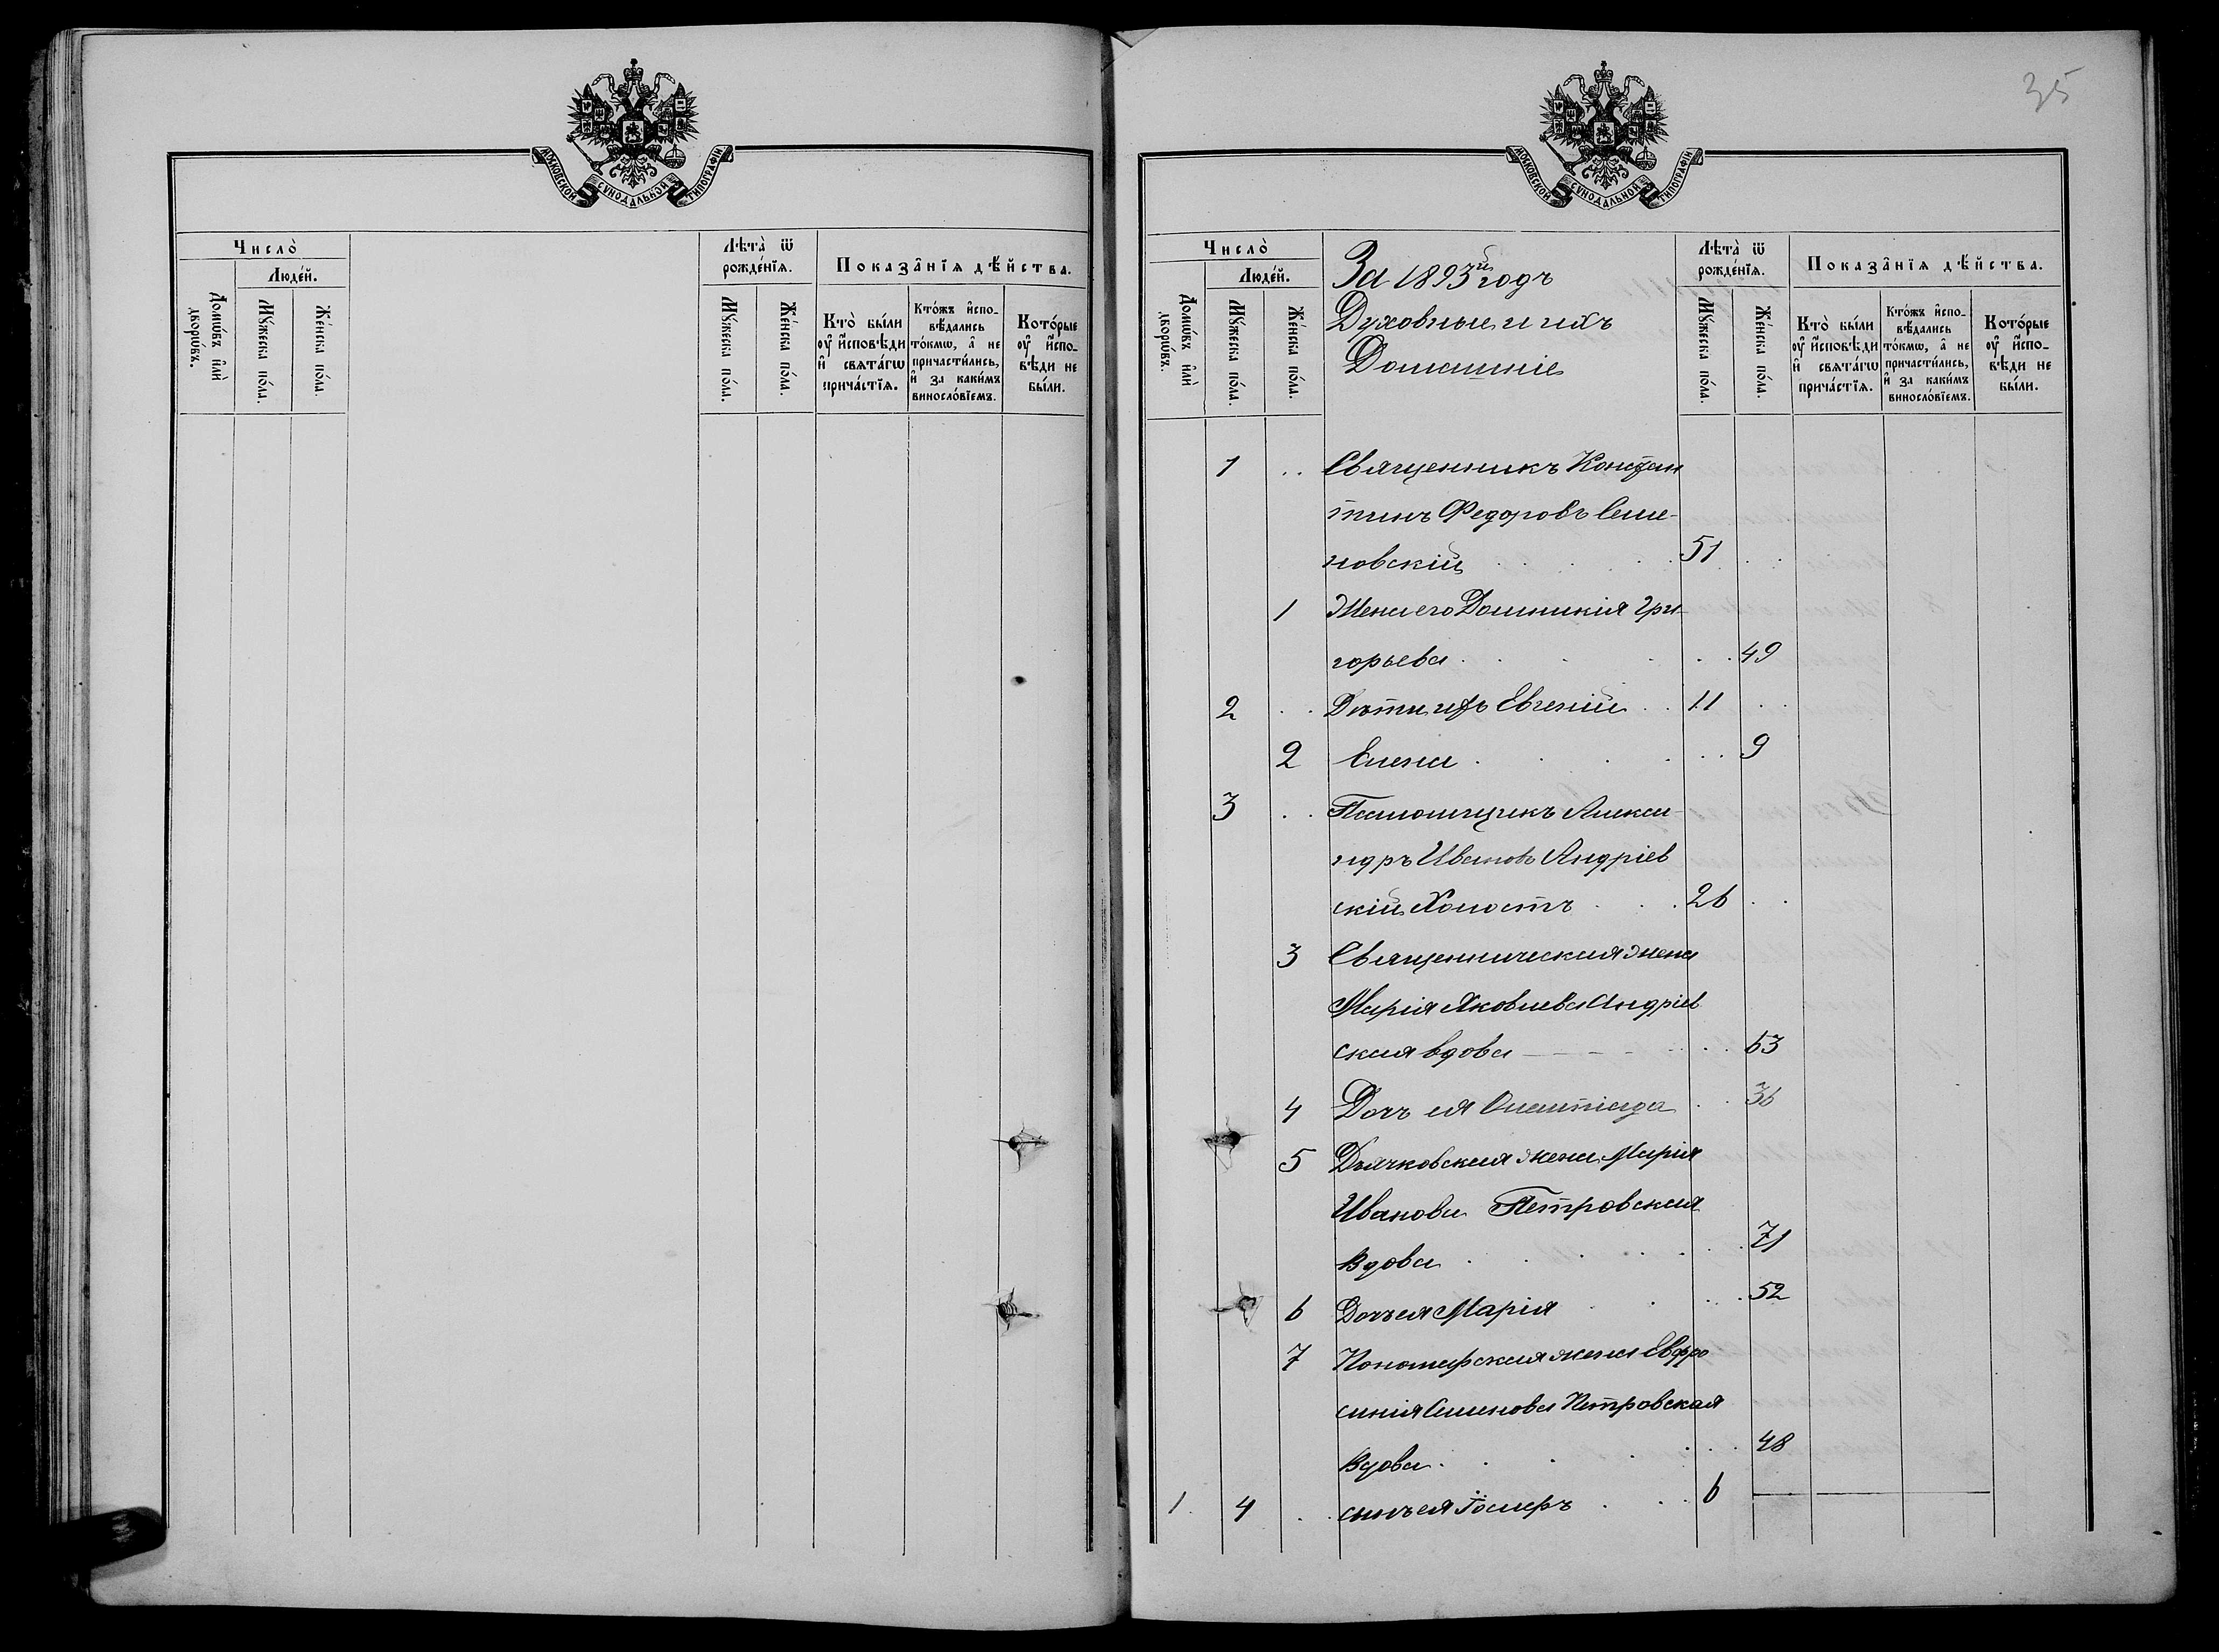 МОСКОВСКОЙ СѴНОДАЛЬНОЙ ТИПОГРАФІИ
Число̀
Люде́й.
Домѡ́въ и҆лѝ дворѡ́въ.
Мꙋ́жеска по́ла.
Же́нска по́ла.
Лѣта̀ ѿ рожде́нїѧ.
Мꙋ́жеска по́ла.
Же́нска по́ла.
Показа̑нїѧ дѣ́йства.
Кто̀ бы́ли ᲂу҆ и҆́сповѣди и҆ свѧта́гѡ прича́стїѧ.
Кто́жъ и҆спо-вѣ́дались то́кмѡ, а҆ не причасти́лись, и҆ за каки́мъ виносло́вїемъ.
Кото́рые ᲂу҆ и҆́спо-вѣди не бы́ли.
35
МОСКОВСКОЙ СѴНОДАЛЬНОЙ ТИПОГРАФІИ
Число̀
Люде́й.
Домѡ́въ и҆лѝ дворѡ́въ.
Мꙋ́жеска по́ла.
Же́нска по́ла.
За 1893й годъ
Духовныи и ихъ
Домашніе
Лѣта̀ ѿ рожде́нїѧ.
Мꙋ́жеска по́ла.
Же́нска по́ла.
Показа̑нїѧ дѣ́йства.
Кто̀ бы́ли ᲂу҆ и҆́сповѣди и҆ свѧта́гѡ прича́стїѧ.
Кто́жъ и҆спо-вѣ́дались то́кмѡ, а҆ не причасти́лись, и҆ за каки́мъ виносло́вїемъ.
Кото́рые ᲂу҆ и҆́спо-вѣди не бы́ли.
1 Священникъ Констан
тинъ Федоровъ Семе-
новскій 51
1 Жена его Домникія Гри-
горьева 49
2 Дѣти ихъ Евгеній 11
2 Елена 9
3 Псаломщикъ Алекса-
ндръ Ивановъ Андріев
скій Холостъ 26
3 Священническая жена
Марія Яковлева Андріев
ская вдова 63
4 Дочь ея Олимпіада 36
5 Дьячковская жена Марія
Иванова Петровская
Вдова 71
6 Дочь ея Марія 52
7 Пономарская жена Евфро
синія Семенова Петровская
Вдова 48
1 4 сынъ ея 6